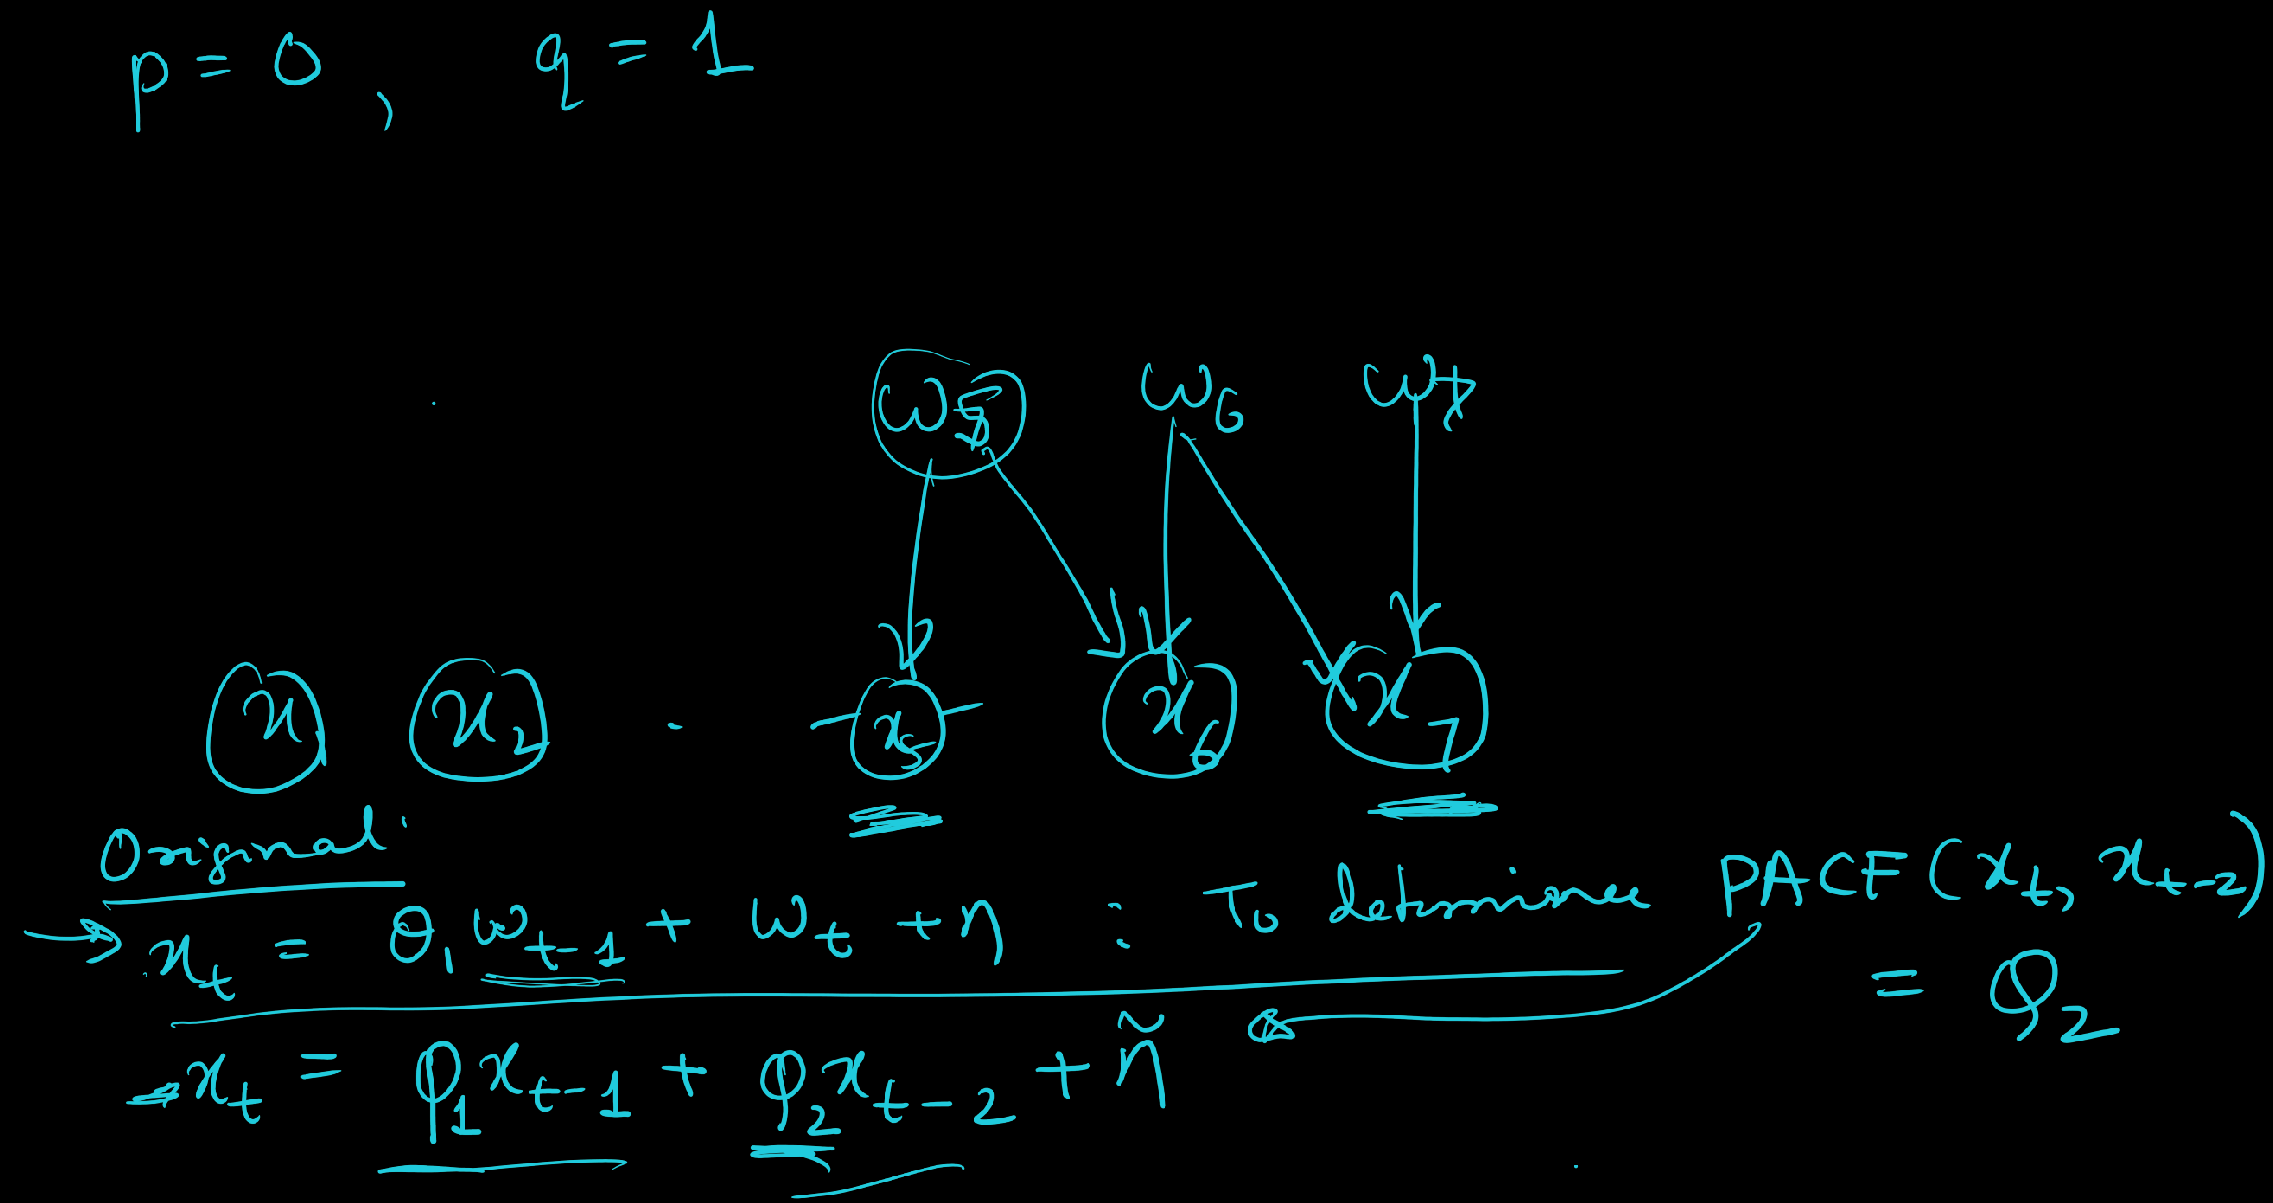 p = 0 , q = 1
ω5 ω6 ω7
x x2 . x5 x6 x7
Original:
xt = θ1 ωt-1 + ωt + η : To determine PACF(xt, xt-2)
= φ2
xt = φ1 xt-1 + φ2 xt-2 + η̃